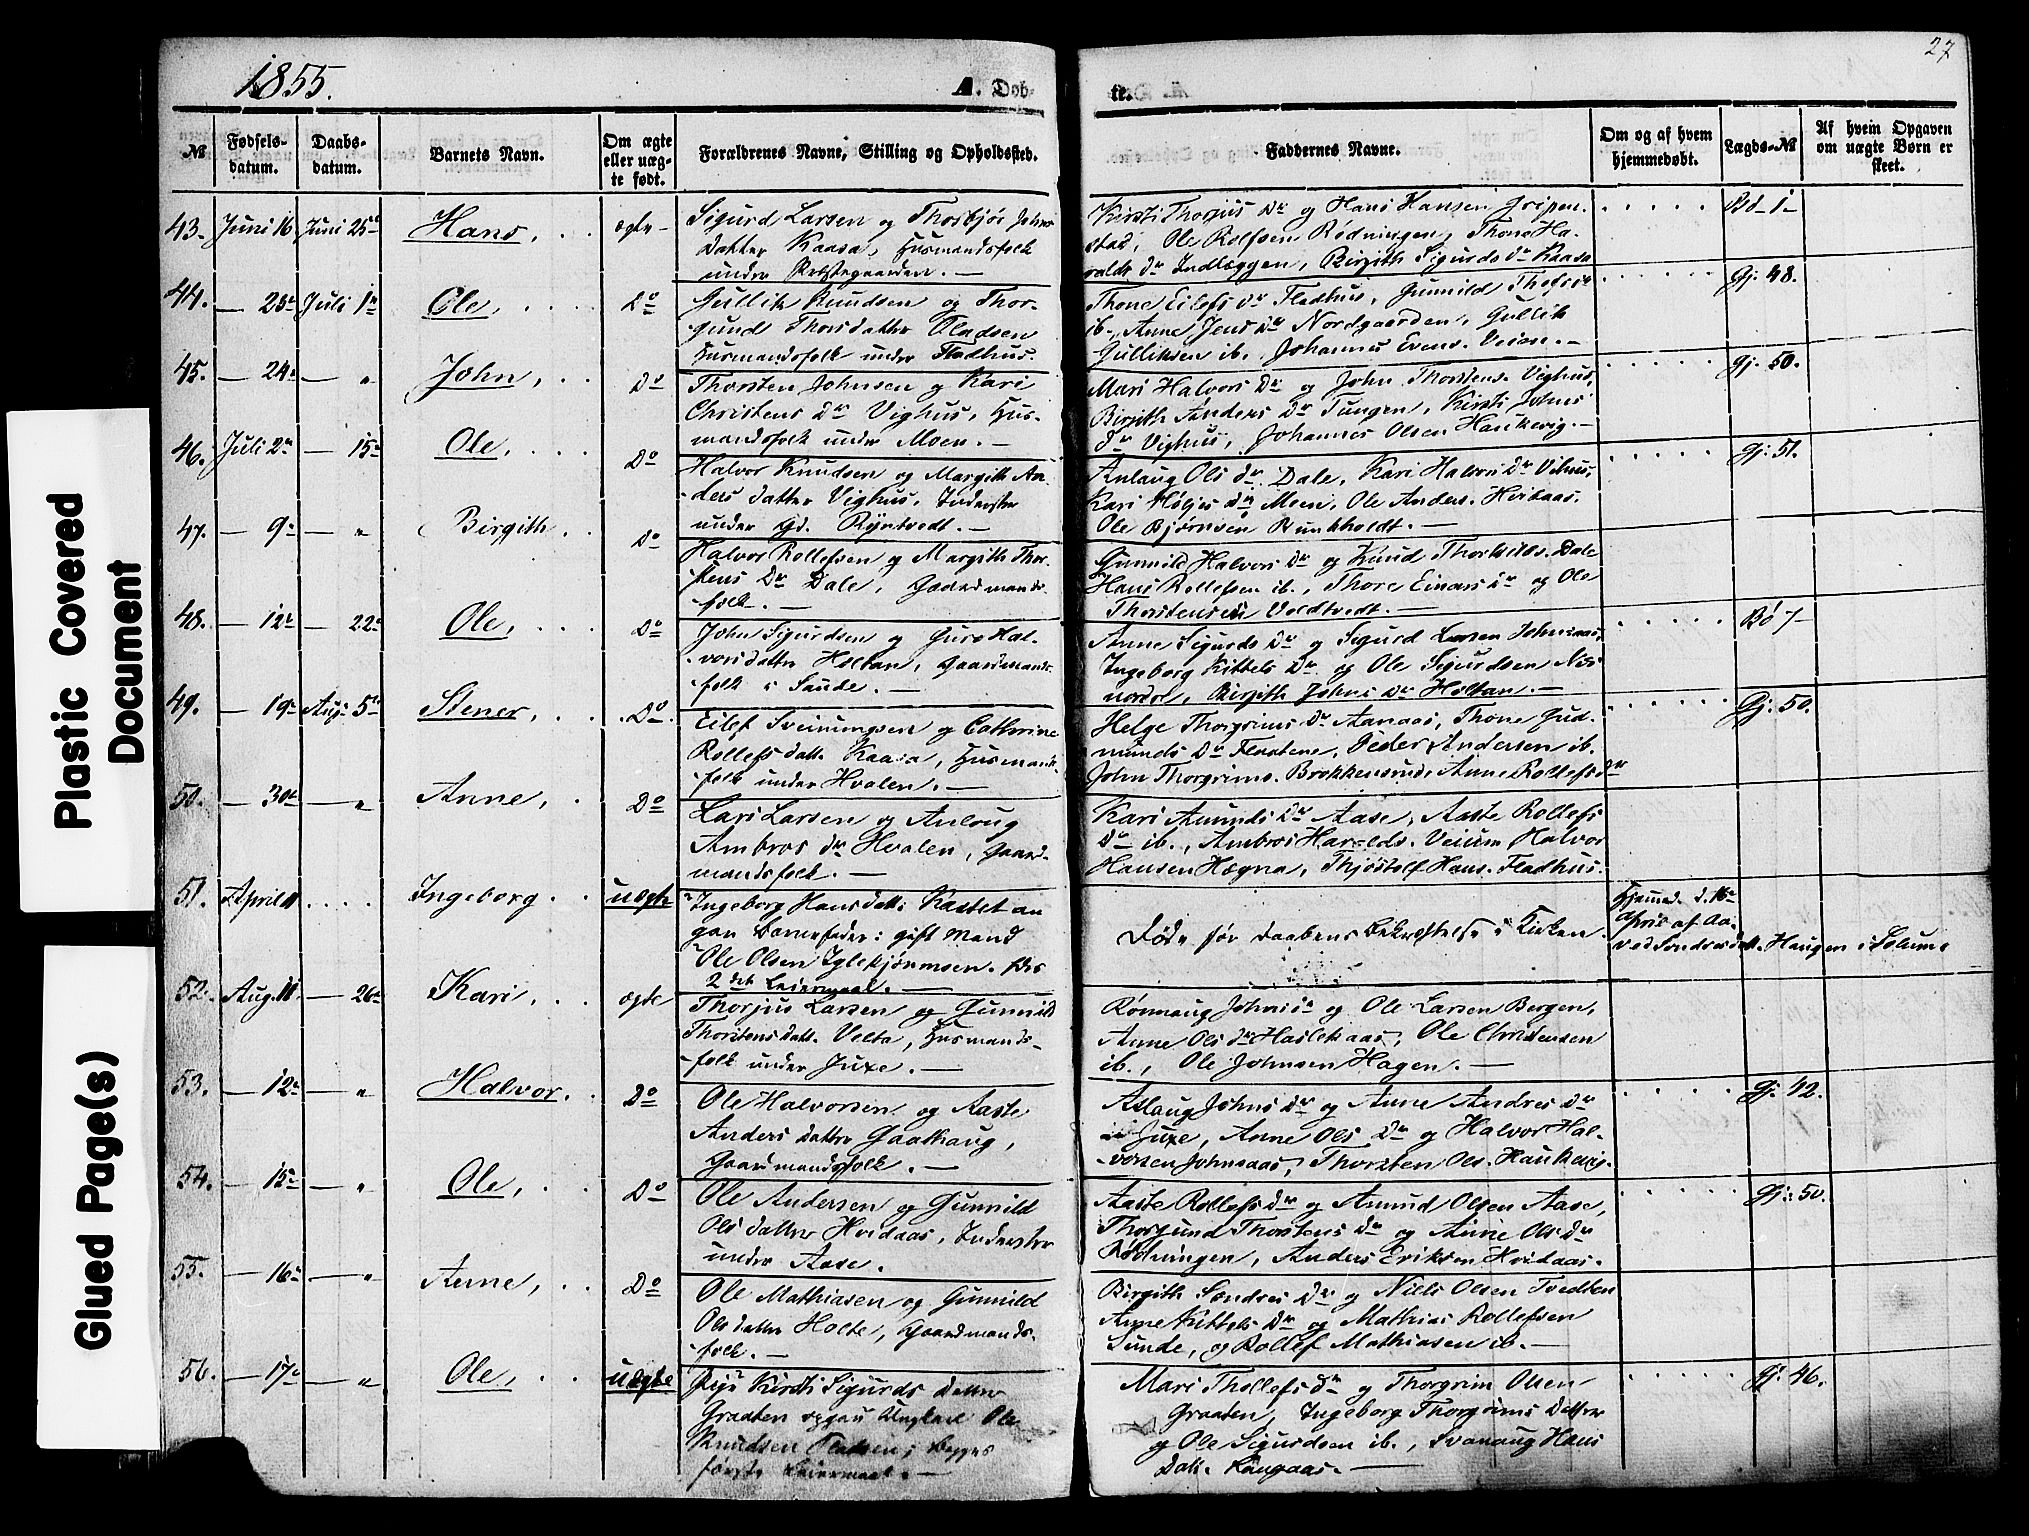 1855.
A. Døb-
te.
27
№
Fødsels-
datum.
Daabs-
datum.
Barnets Navn.
Om ægte
eller uæg-
te født.
Forældrenes Navne, Stilling og Opholdssted.
Faddernes Navne.
Om og af hvem
hjemmedøbt.
Lægds-№
Af hvem Opgaven
om uægte Børn er
skeet.
43. Juni 16 Juni 25 Hans, ægte
Sigurd Larsen og Thorbjør Johns
datter Kaasa, Huusmandsfolk
under Præstegaarden. —
Kirsti Thorjus Dr og Hans Hansen Gripen-
stad, Ole Rolfsen Rødningen, Thone Ha-
ralds Dr Indlæggen, Birgith Sigurds Dr Kaasa
Bø 1
44. — 25 Juli 1 Ole, Do
Gullik Knudsen og Thor-
gund Thorsdatter Oladsen
Huusmandsfolk under Fladhus.
Thone Eilefs Dr Fladhus, Gunnild
ib., Anne Jens Dr Nordgaarden, Gullik
Gulliksen ib. Johannes Evens. Veien. —
Gj. 48.
45. — 24 — „ John, Do
Thorsten Johnsen og Kari
Christens Dr Vighus, Hus-
mandsfolk under Moen. —
Mari Halvors Dr og John Thorstens. Vighus,
Birgith Anders Dr Tungen, Kirsti Johns
Dr Vighus, Johannes Olsen Haukevig. —
Gj. 50.
46. Juli 2 — 15 Ole, Do
Halvor Knudsen og Margith An-
ders datter Vighus, Inderster
under Gd. Ryntvedt. —
Anlaug Ols Dr Dale, Kari Halvors Dr Vihus,
Kari Høljes Dr Moen, Ole Anders. Hvidaas.
Ole Bjørnsen Bunkholdt. —
Gj. 51.
47. — 9 — „ Birgith Do
Halvor Rollefsen og Margith Thor-
stens Dr Dale, Gaardmands-
folk. —
Gunnild Halvors Dr og Knud Thorkilds. Dale
Hans Rollefsen ib., Thore Einars Dr og Ole
Thorstensen Voldtvedt. —
48. — 12 — 22 Ole, Do
John Sigurdsen og Guro Hal-
vorsdatter Holtan, Gaardmands-
folk i Saude. —
Anne Sigurds Dr og Sigurd Larsen Johnsaas,
Ingeborg Kittels Dr og Ole Sigurdsen Nis
Birgith Johns Dr Holtan. —
Bø 7
49. — 19 Aug. 5 Stener, Do
Eilef Sveinungsen og Cathrine
Rollefs datt. Kaasa, Husmands-
folk under Hvalen. —
Helge Thorgrims Dr Aanaas, Thone Gud-
munds Dr Flaatene, Peder Andersen ib.
John Thorgrims. Brokkensrud, Anne Rollefs Dr
Gj. 50.
50. — 30 — „ Anne, Do
Lars Larsen og Anlaug
Ambros Dr Hvalen, Gaard-
mandsfolk. —
Kari Amunds Dr Aase, Aaste Rollefs
Dr ib., Ambros Haralds. Veium Halvor
Hansen Hægna, Thjøstolf Hans. Fladhus.
51. April 11 Ingeborg uægte
Ingeborg Hansdatt: Kastet an
gav Barnefader: gift Mand
Ole Olsen Iglekjønmsen. Des
2det Leiermaal. —
Død før Daabens Bekræftelse i Kirken
Hjemmed. d. 16
April af Aa-
vod Sondresdatt. Haugen i Solum
52. Aug. 11 — 26 Kari, ægte
Thorjus Larsen og Gunnild
Thorstensdatt. Velta, Husmands-
folk under Juxe. —
Rønnaug Johns Dr og Ole Larsen Bergen,
Anne Ols Dr Haslekaas, Ole Christensen
ib., Ole Johnsen Hagen. —
53. — 12 — „ Halvor. Do
Ole Halvorsen og Aaste
Anders datter Gaakaug,
Gaardmandsfolk. —
Aslaug Johns Dr og Anne Andres Dr
Juxe, Anne Ols Dr og Halvor Hal-
vorsen Johnsaas, Thorsten Ols. Haukevig.
Gj. 42.
54. — 15 — „ Ole, Do
Ole Andersen og Gunnild
Ols datter Hvidaas, Inderster
under Aase.
Aaste Rollefs Dr og Amund Olsen Aase,
Thorgund Thorstens Dr og Anne Ols Dr
Rødningen, Anders Eriksen Hvidaas.
Gj. 50.
55. — 16 — „ Anne, Do
Ole Mathiasen og Gunnild
Olsdatter Holte, Gaardmands-
folk. —
Birgith Sondres Dr og Niels Olsen Tvedten
Anne Kittels Dr og Mathias Rollefsen
Sunde, og Rollef Mathiasen ib. —
56. — 17 — „ Ole, uægte
Pige Kirsti Sigurds datter
Graaten opgav Ungkarl Ole
Knudsen Fladsen; Begges
første Leiermaal. —
Mari Thollefs Dr og Thorgrim Olsen
Graaten, Ingeborg Thorgrims Datter
og Ole Sigurdsen ib., Svanaug Hans
Datt.
Gj. 46.
Plastic Covered
Document
Glued Page(s)